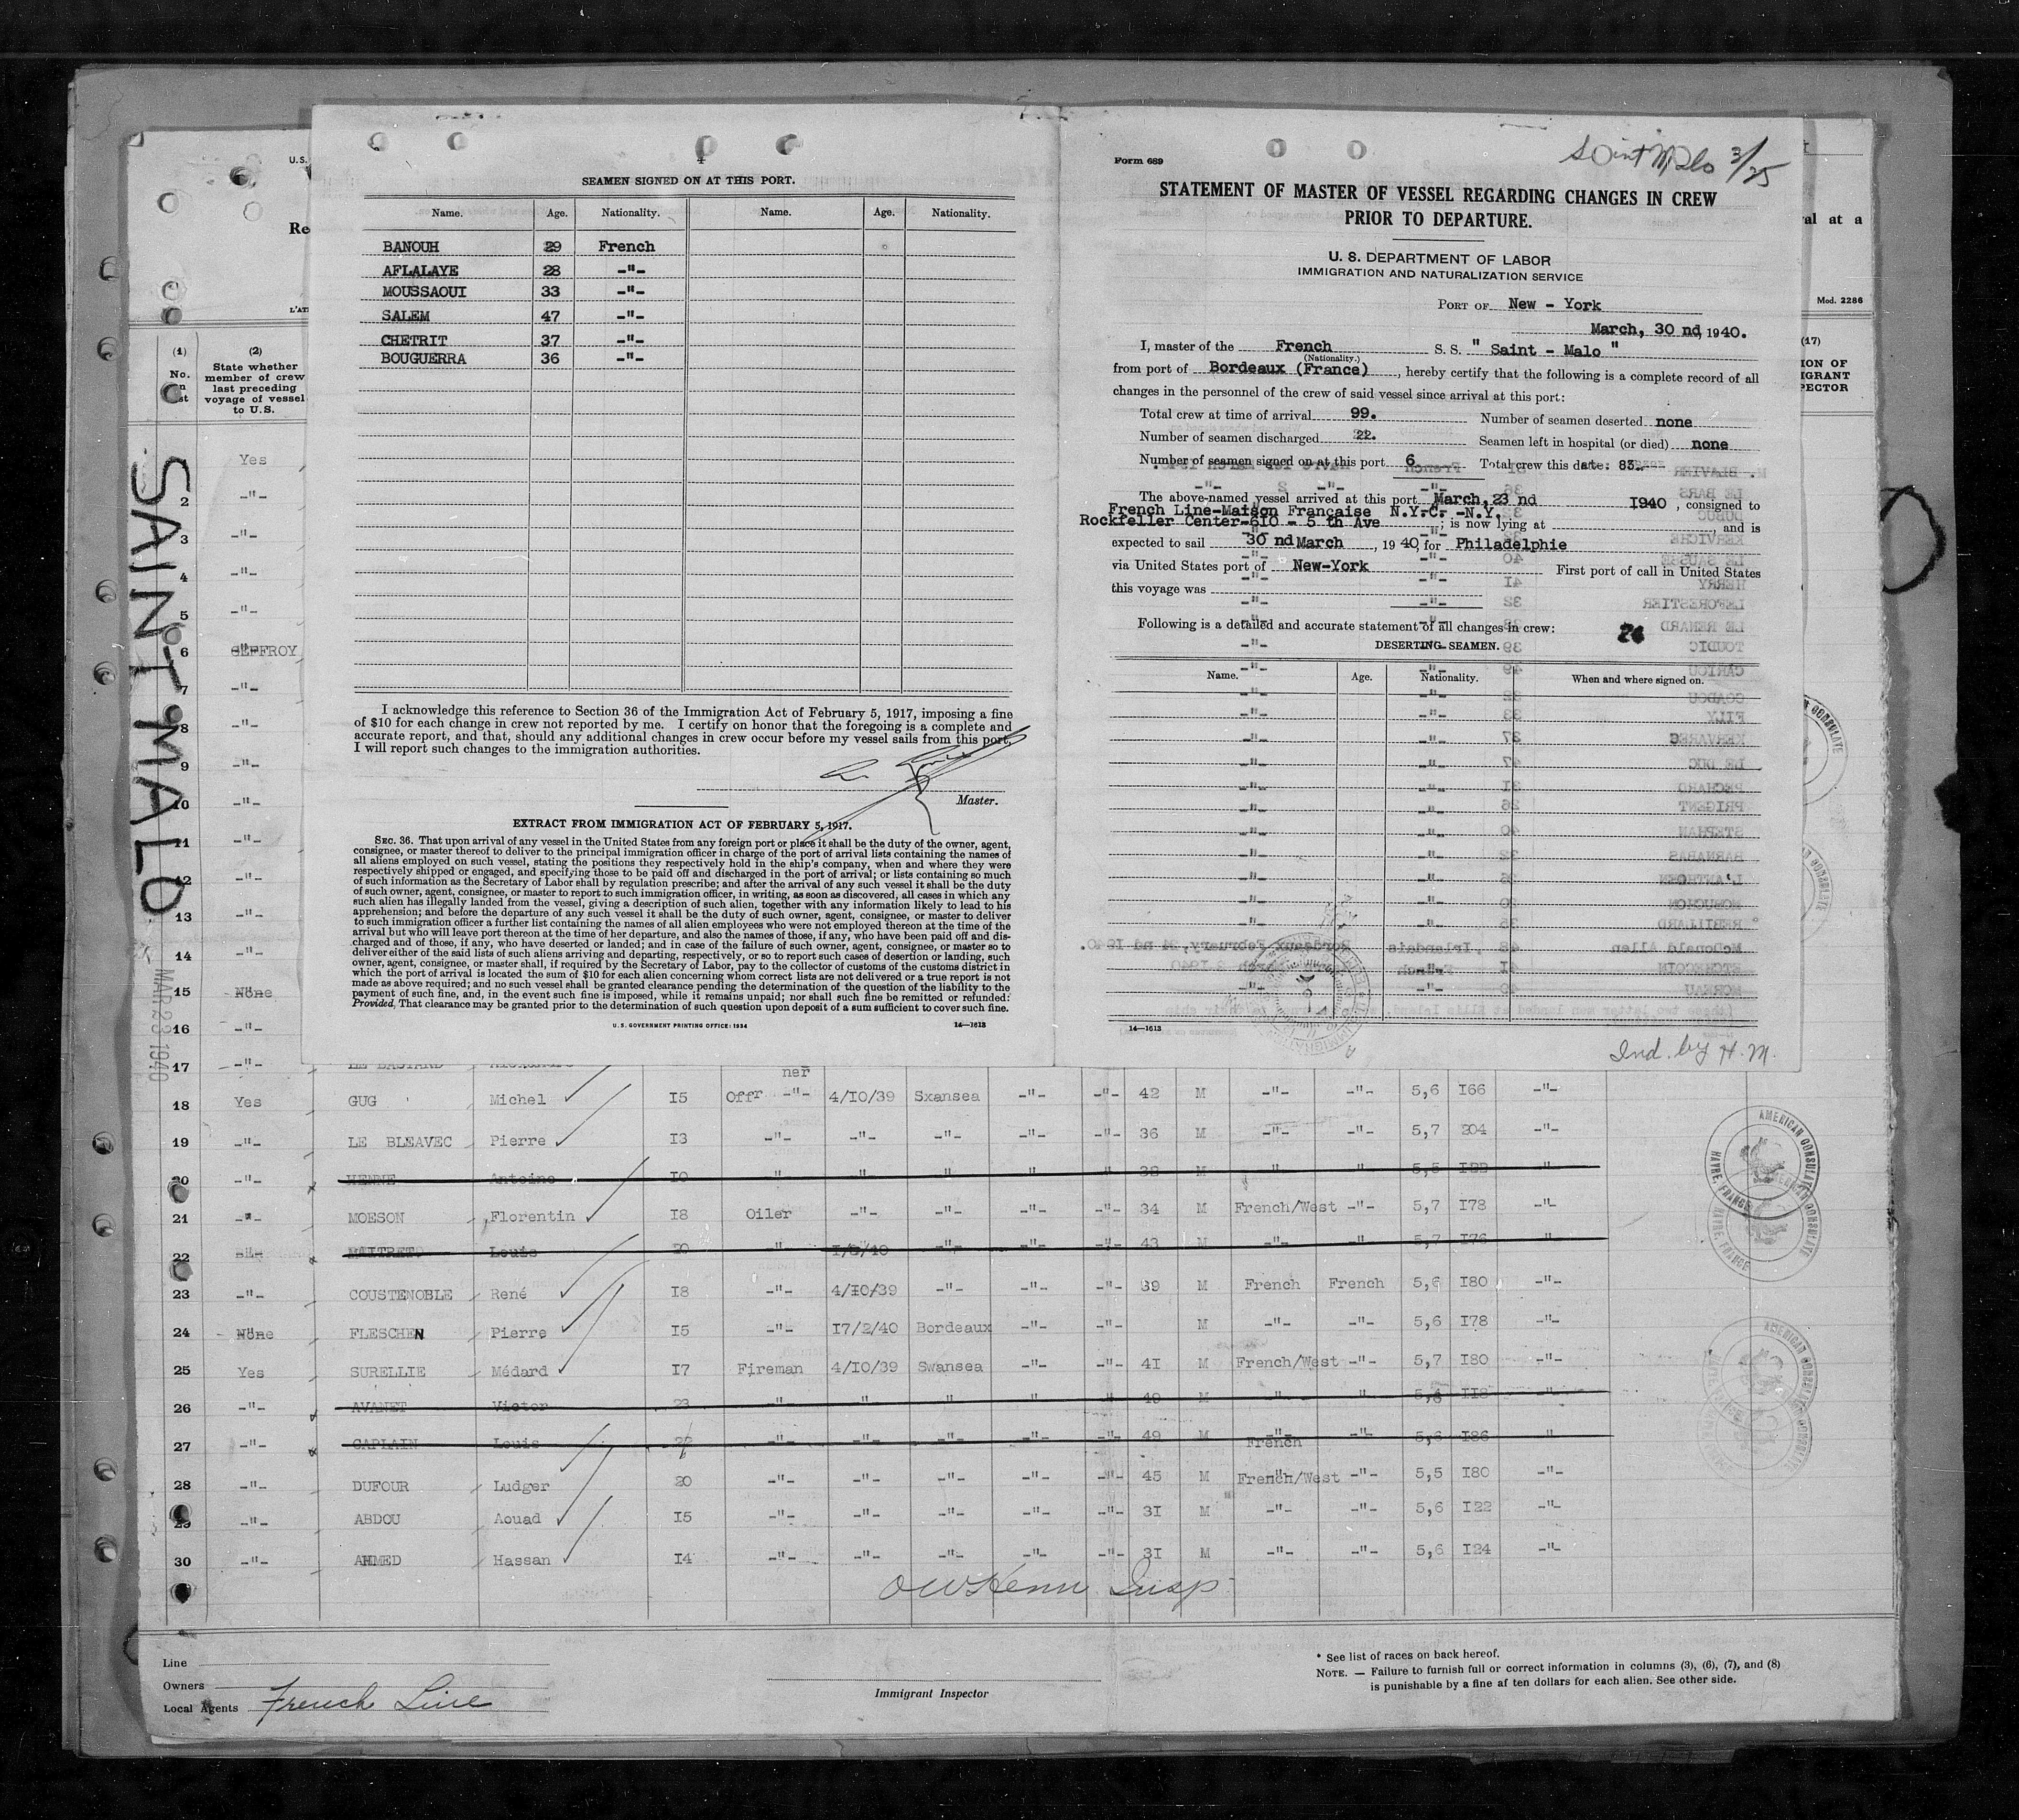 4
SEAMEN SIGNED ON AT THIS PORT.
Name. Age. Nationality. Name. Age. Nationality.
BANOUH 29 French
AFLALAYE 28 -"-
MOUSSAOUI 33 -"-
SALEM 47 -"-
CHETRIT 37 -"-
BOUGUERRA 36 -"-
I acknowledge this reference to Section 36 of the Immigration Act of February 5, 1917, imposing a fine
of $10 for each change in crew not reported by me. I certify on honor that the foregoing is a complete and
accurate report, and that, should any additional changes in crew occur before my vessel sails from this port,
I will report such changes to the immigration authorities.
Master.
EXTRACT FROM IMMIGRATION ACT OF FEBRUARY 5, 1917.
SEC. 36. That upon arrival of any vessel in the United States from any foreign port or place it shall be the duty of the owner, agent,
consignee, or master thereof to deliver to the principal immigration officer in charge of the port of arrival lists containing the names of
all aliens employed on such vessel, stating the positions they respectively hold in the ship's company, when and where they were
respectively shipped or engaged, and specifying those to be paid off and discharged in the port of arrival; or lists containing so much
of such information as the Secretary of Labor shall by regulation prescribe; and after the arrival of any such vessel it shall be the duty
of such owner, agent, consignee, or master to report to such immigration officer, in writing, as soon as discovered, all cases in which any
such alien has illegally landed from the vessel, giving a description of such alien, together with any information likely to lead to his
apprehension; and before the departure of any such vessel it shall be the duty of such owner, agent, consignee, or master to deliver
to such immigration officer a further list containing the names of all alien employees who were not employed thereon at the time of the
arrival but who will leave port thereon at the time of her departure, and also the names of those, if any, who have been paid off and dis-
charged and of those, if any, who have deserted or landed; and in case of the failure of such owner, agent, consignee, or master so to
deliver either of the said lists of such aliens arriving and departing, respectively, or so to report such cases of desertion or landing, such
owner, agent, consignee, or master shall, if required by the Secretary of Labor, pay to the collector of customs of the customs district in
which the port of arrival is located the sum of $10 for each alien concerning whom correct lists are not delivered or a true report is not
made as above required; and no such vessel shall be granted clearance pending the determination of the question of the liability to the
payment of such fine, and, in the event such fine is imposed, while it remains unpaid; nor shall such fine be remitted or refunded:
Provided, That clearance may be granted prior to the determination of such question upon deposit of a sum sufficient to cover such fine.
U. S. GOVERNMENT PRINTING OFFICE: 1934 14—1613
Form 689
Saint Malo 3/25
STATEMENT OF MASTER OF VESSEL REGARDING CHANGES IN CREW
PRIOR TO DEPARTURE.
U. S. DEPARTMENT OF LABOR
IMMIGRATION AND NATURALIZATION SERVICE
PORT OF New - York
March, 30 nd, 1940.
I, master of the French S. S. " Saint - Malo "
(Nationality.)
from port of Bordeaux (France), hereby certify that the following is a complete record of all
changes in the personnel of the crew of said vessel since arrival at this port:
Total crew at time of arrival 99. Number of seamen deserted none
Number of seamen discharged 22. Seamen left in hospital (or died) none
Number of seamen signed on at this port 6 Total crew this date: 83.
The above-named vessel arrived at this port March, 23 nd I940, consigned to
French Line-Maison Française N.Y.C. -N.Y.
Rockfeller Center-610 - 5 th Ave; is now lying at , and is
expected to sail 30 nd March, 1940, for Philadelphie
via United States port of New-York First port of call in United States
this voyage was
Following is a detailed and accurate statement of all changes in crew: 24
DESERTING SEAMEN.
Name. Age. Nationality. When and where signed on.
14—1613
Ind. by H. M.
U. S.
Re
L'AT
val at a
Mod. 2286
(1) (2) (17)
No. State whether
member of crew
last preceding
voyage of vessel
to U.S.
ION OF
IGRANT
PECTOR
SAINT MALO
MAR 23 1940
Yes
2 -"-
3 -"-
4 -"-
5 -"-
6 GEFFROY
7 -"-
8 -"-
9 -"-
10 -"-
11 -"-
12 -"-
13 -"-
14 -"-
15 None
16 -"-
17 -"- ner
18 Yes GUG Michel I5 Offr -"- 4/IO/39 Sxansea -"- -"- 42 M -"- -"- 5,6 I66 -"-
19 -"- LE BLEAVEC Pierre I3 -"- -"- -"- -"- -"- 36 M -"- -"- 5,7 204 -"-
20 -"- VENNE Antoine I0 " " " " " 38 M " " 5,5 I22 "
21 -"- MOESON Florentin I8 Oiler -"- -"- -"- -"- 34 M French/West -"- 5,7 I78 -"-
22 -"- Louis 20 -"- -"- -"- -"- 43 M -"- -"- 5,7 I76 "
23 -"- COUSTENOBLE René I8 -"- 4/IO/39 -"- -"- -"- 39 M French French 5,6 I80 -"-
24 None FLESCHEN Pierre I5 -"- I7/2/40 Bordeaux -"- -"- M -"- -"- 5,6 I78 -"-
25 Yes SURELLIE Médard I7 Fireman 4/IO/39 Swansea -"- -"- 4I M French/West -"- 5,7 I80 -"-
26 -"- AVANET Victor 23 " " " " " 49 M " " 5,4 II8 "
27 -"- CAPLAIN Louis -"- -"- -"- -"- -"- 49 M French -"- 5,6 I86 "
28 -"- DUFOUR Ludger 20 -"- -"- -"- -"- -"- 45 M French/West -"- 5,5 I80 -"-
29 -"- ABDOU Aouad I5 -"- -"- -"- -"- -"- 3I M -"- -"- 5,6 I22 -"-
30 -"- AHMED Hassan I4 -"- -"- -"- -"- -"- 3I M -"- -"- 5,6 I24 -"-
Insp.
AMERICAN CONSULATE
HAVRE, FRANCE
Line
Owners
Local Agents French Line
Immigrant Inspector
* See list of races on back hereof.
NOTE. — Failure to furnish full or correct information in columns (3), (6), (7), and (8)
is punishable by a fine af ten dollars for each alien. See other side.